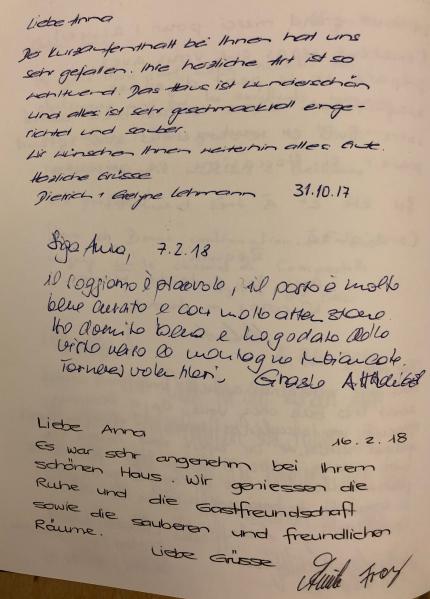 Liebe Anna
Der Kurzaufenthalt bei Ihnen hat uns
sehr gefallen. Ihre herzliche Art ist so
wohltuend. Das Haus ist wunderschön
und alles ist sehr geschmackvoll einge-
richtet und sauber.
Wir wünschen Ihnen weiterhin alles Gute.
Herzliche Grüsse
Dietrich + Evelyne Lehmann 31.10.17
Siga Anna, 7.2.18
il soggiorno è piacevole, il posto è molto
bene curato e con molta attenzione.
Ho dormito bene e ho goduto della
vista verso le montagne imbiancate.
Tornerei volentieri, Grazie
Liebe Anna 16.2.18
Es war sehr angenehm bei Ihrem
schönen Haus. Wir geniessen die
Ruhe und die Gastfreundschaft
sowie die sauberen und freundlichen
Räume.
Liebe Grüsse